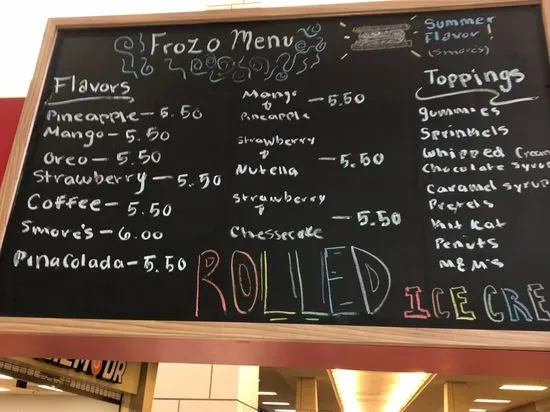 Frozo Menu
Summer
Flavor!
(Smores)
Flavors
Pineapple - 5.50
Mango - 5.50
Oreo - 5.50
Strawberry - 5.50
Coffee - 5.50
Smore's - 6.00
Pinacolada - 5.50
Mango
&
Pineapple - 5.50
Strawberry
&
Nutella - 5.50
Strawberry
&
Chessecake - 5.50
Toppings
gummies
Sprinkels
Whipped Cream
Chocolate Syrup
Caramel Syrup
Pretels
Kit Kat
Penuts
M&M's
ROLLED ICE CRE